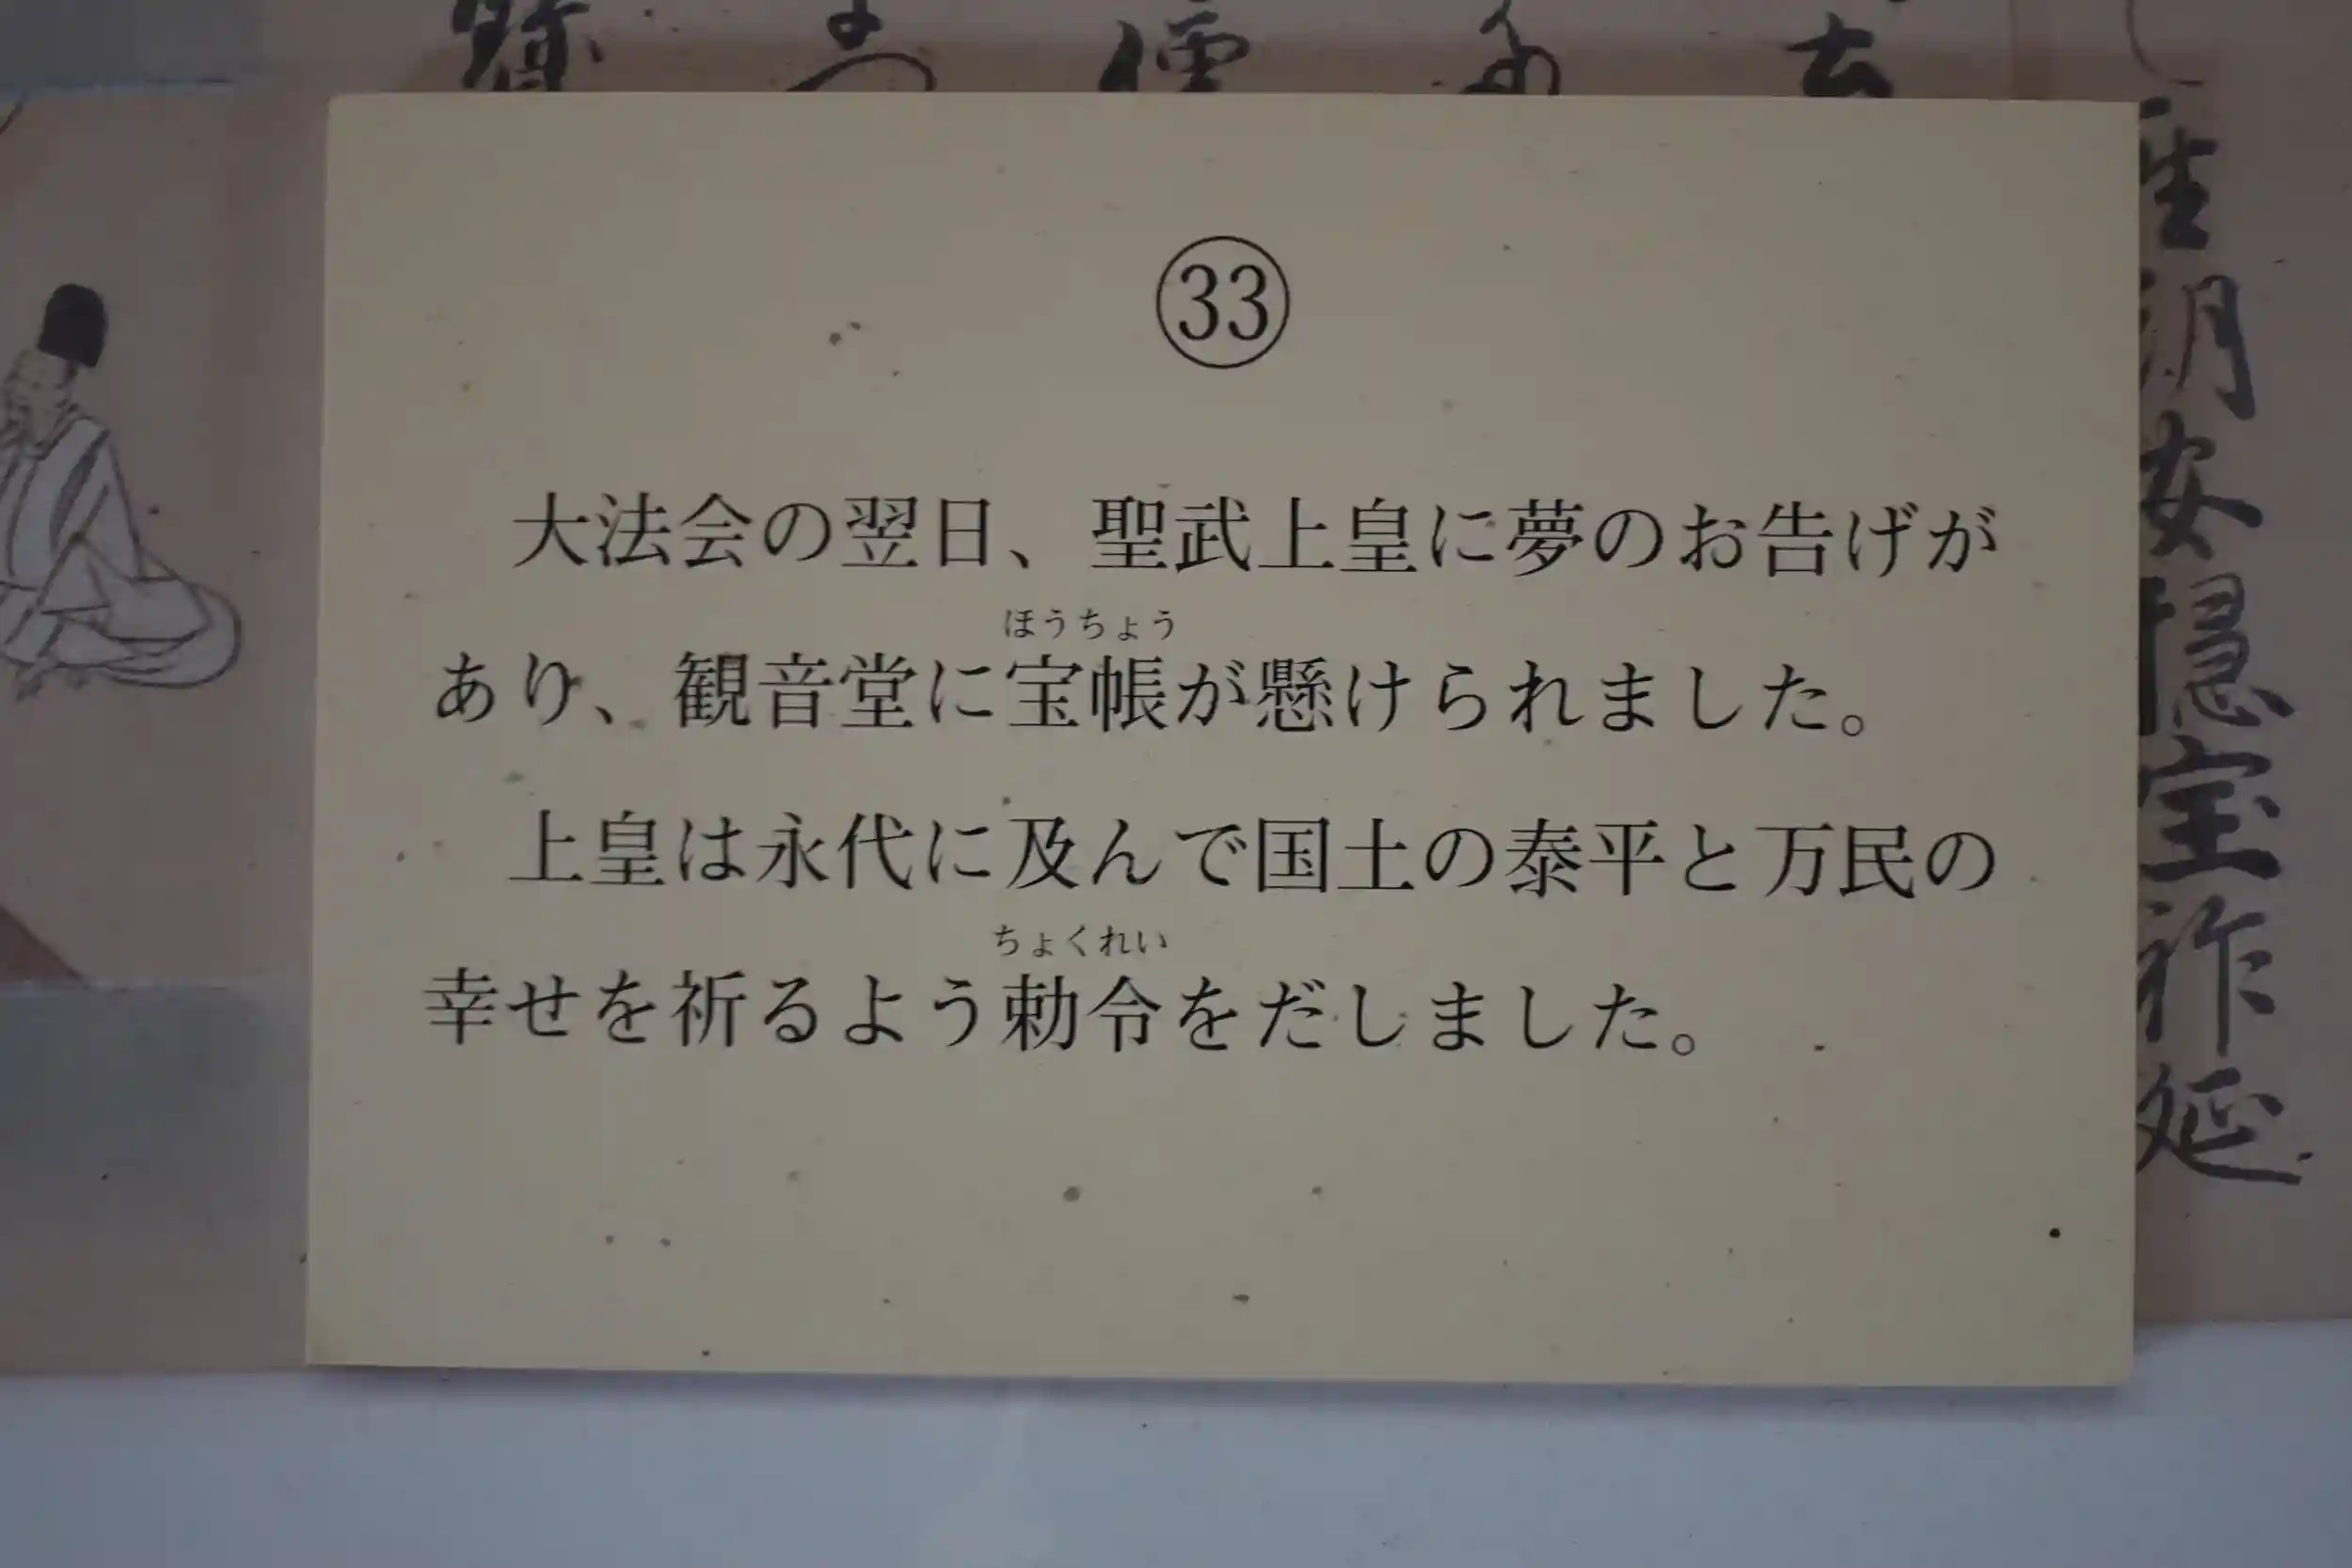 ㉝
大法会の翌日、聖武上皇に夢のお告げが
ほうちょう
あり、観音堂に宝帳が懸けられました。
上皇は永代に及んで国土の泰平と万民の
ちょくれい
幸せを祈るよう勅令をだしました。
安隠宝祚延